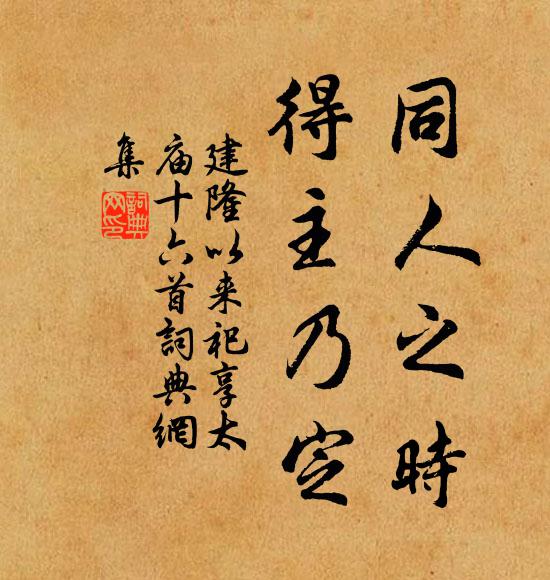 同人之時
得主乃定
建隆以来祀享太
庙十六首詞典網
集
詞典
网印